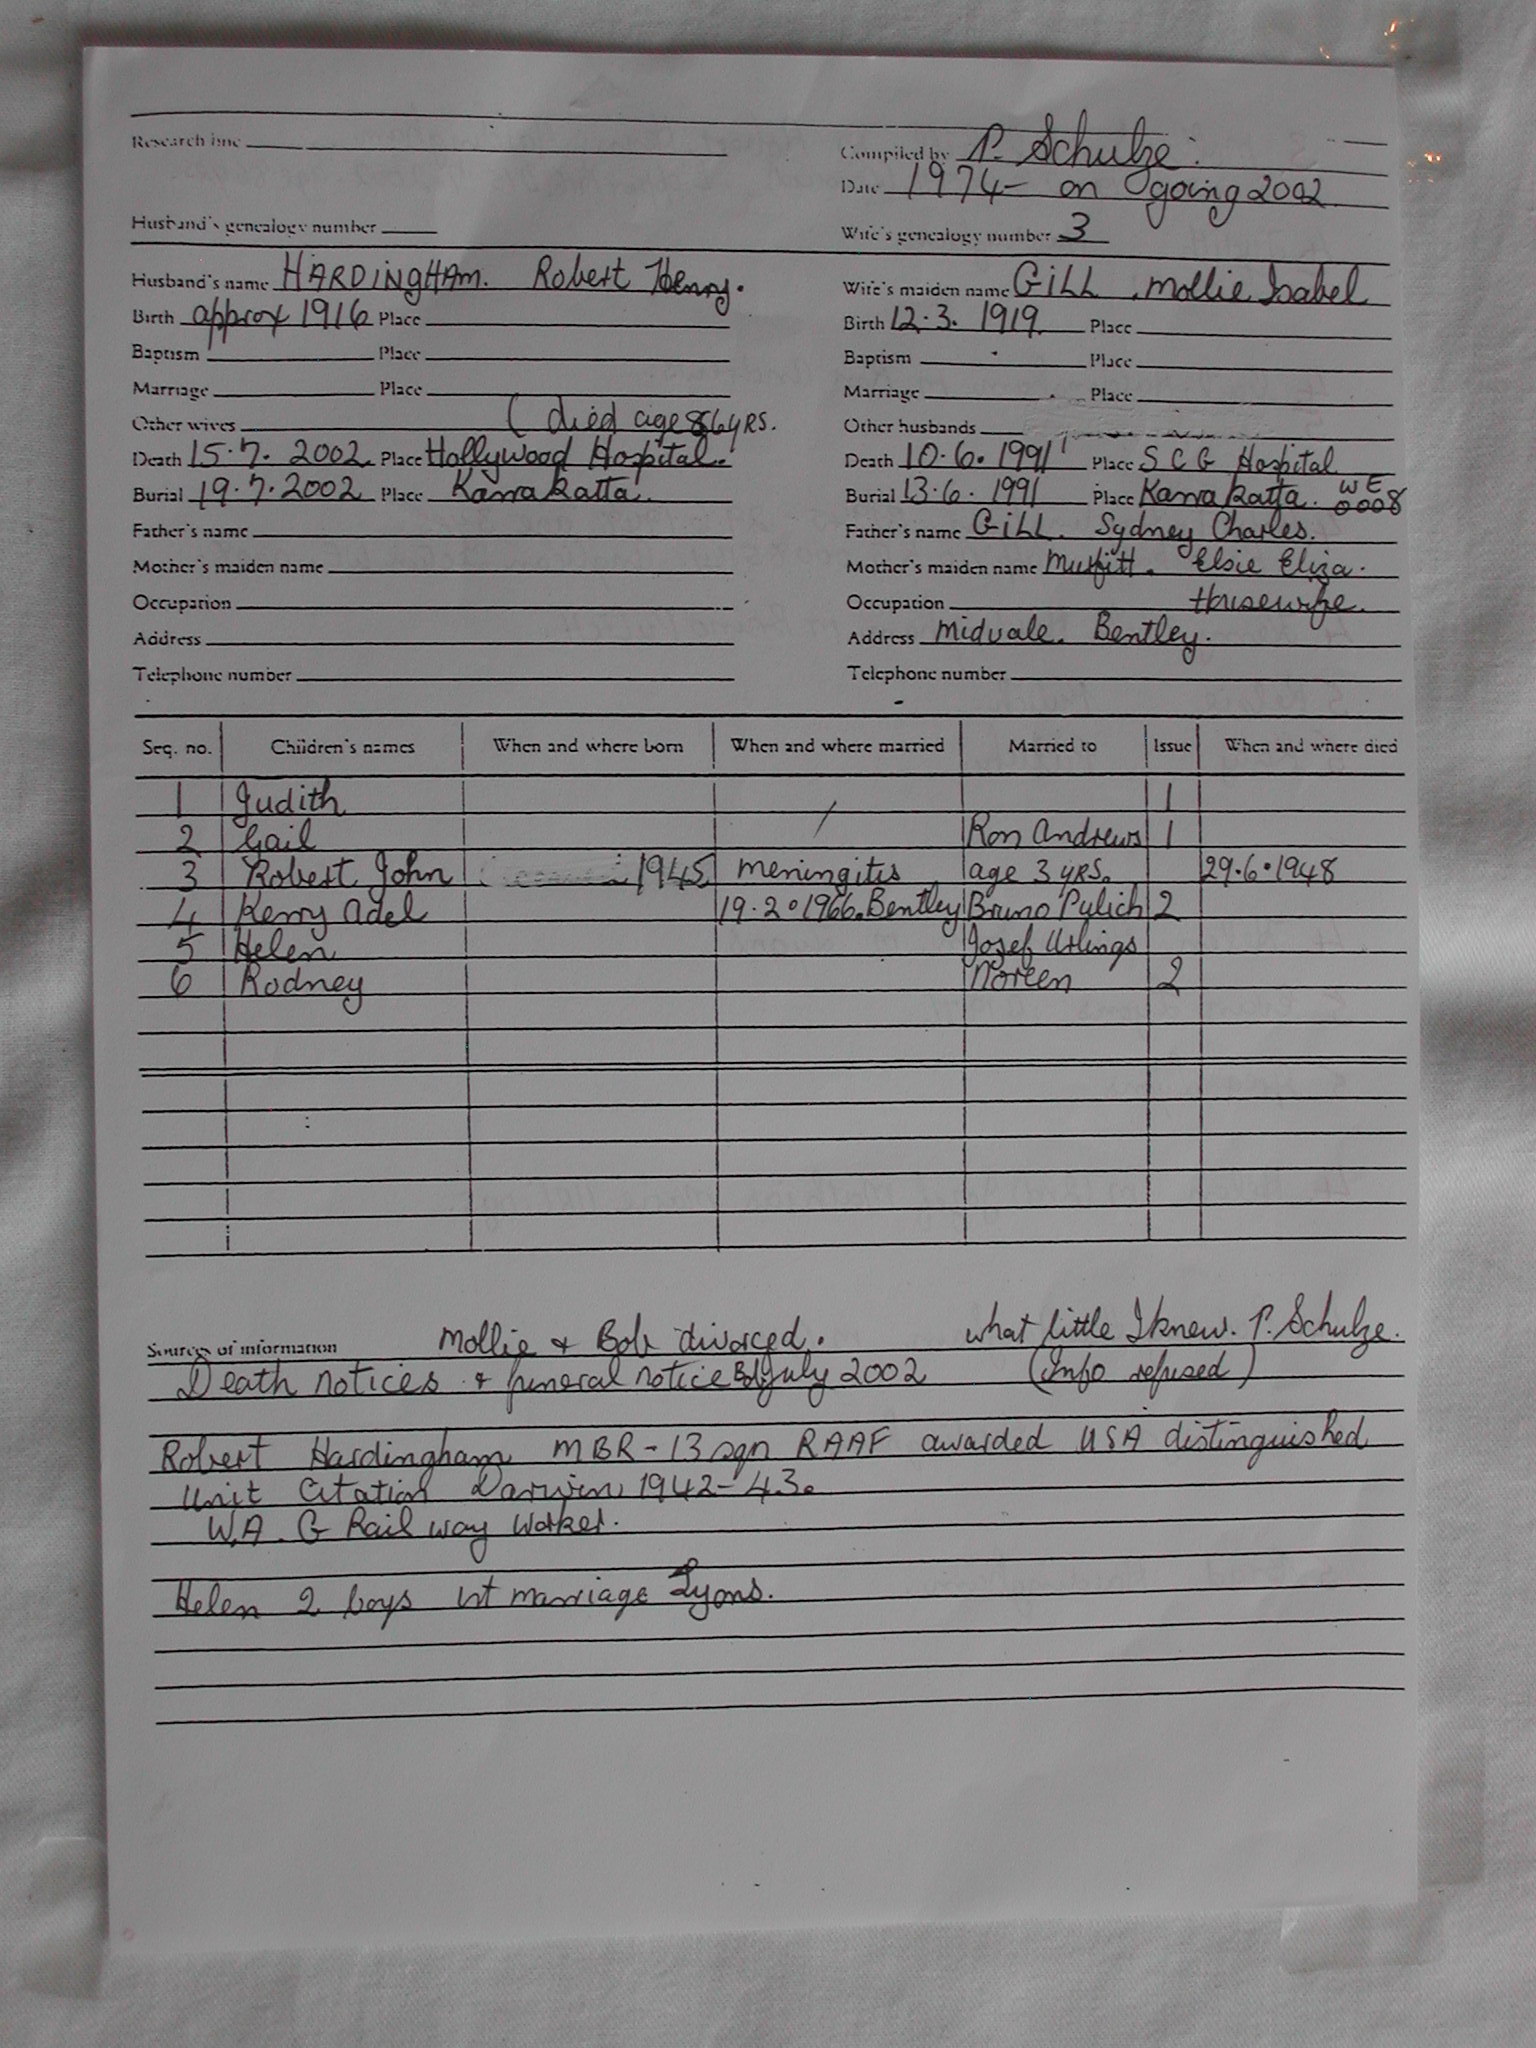 Research line
Compiled by P. Schulze.
Date 1974- on going 2002.
Husband's genealogy number
Wife's genealogy number 3
Husband's name HARDINGHAM. Robert Henry.
Wife's maiden name GILL. Mollie Isabel
Birth approx 1916 Place
Birth 12.3.1919 Place
Baptism Place
Baptism Place
Marriage Place
Marriage Place
Other wives (died age 86 YRS.
Other husbands
Death 15.7.2002. Place Hollywood Hospital.
Death 10.6.1991 Place S C G Hospital
Burial 19.7.2002 Place Karrakatta.
Burial 13.6.1991 Place Karrakatta. WE 0008
Father's name
Father's name GILL. Sydney Charles.
Mother's maiden name
Mother's maiden name Elsie Eliza.
Occupation
Occupation Housewife.
Address
Address Midvale. Bentley.
Telephone number
Telephone number
Seq. no. Children's names When and where born When and where married Married to Issue When and where died
1 Judith 1
2 Gail Ron Andrews 1
3 Robert John 1945 meningitis age 3 YRS. 29.6.1948
4 Kerry Adel 19.2.1966. Bentley Bruno Pulich 2
5 Helen Josef
6 Rodney Noreen 2
Sources of information Mollie & Bob divorced. what little I knew. P. Schulze.
Death notices & funeral notice Bob July 2002 (Info refused)
Robert Hardingham MBR - 13 sqn RAAF awarded USA distinguished
Unit Citation Darwin 1942-43.
W.A. G Railway worker.
Helen 2 boys 1st marriage Lyons.